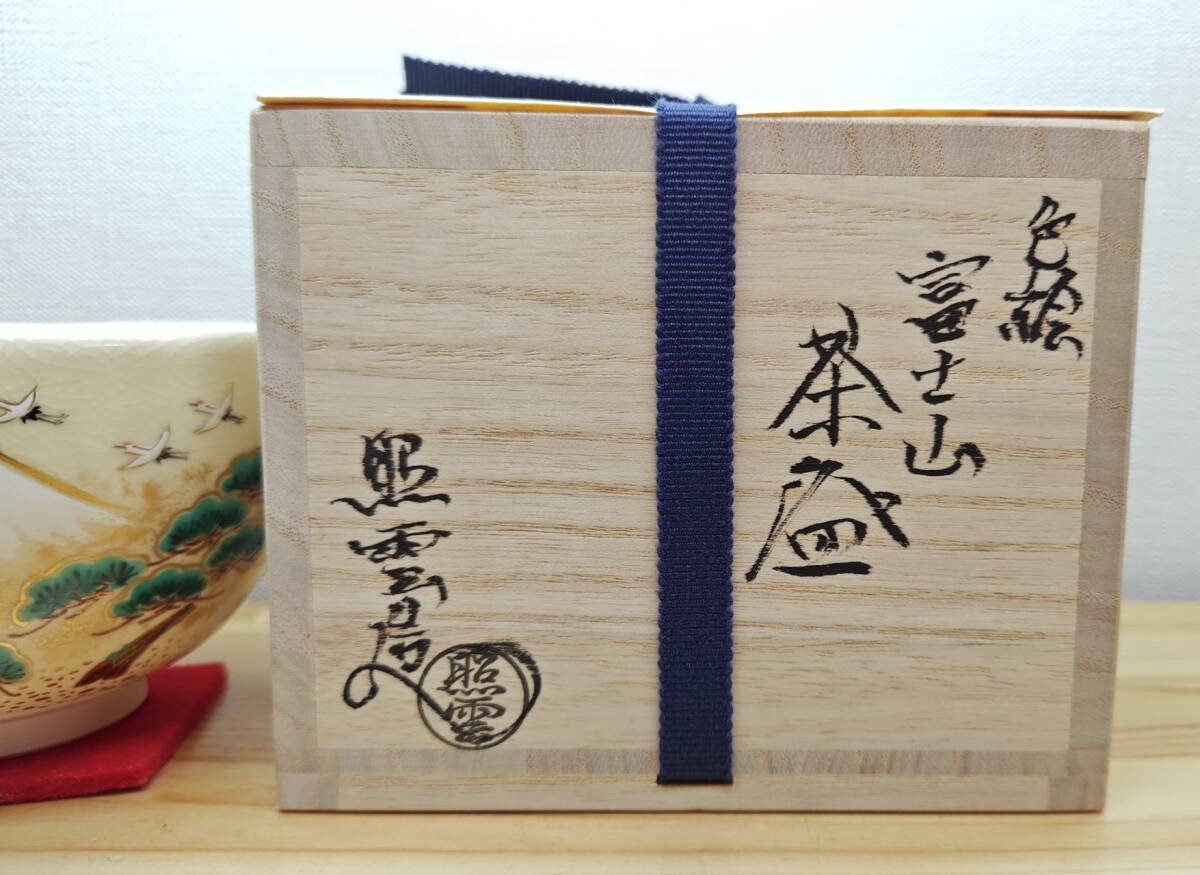 色絵
富士山
茶盌
照雲造
照雲